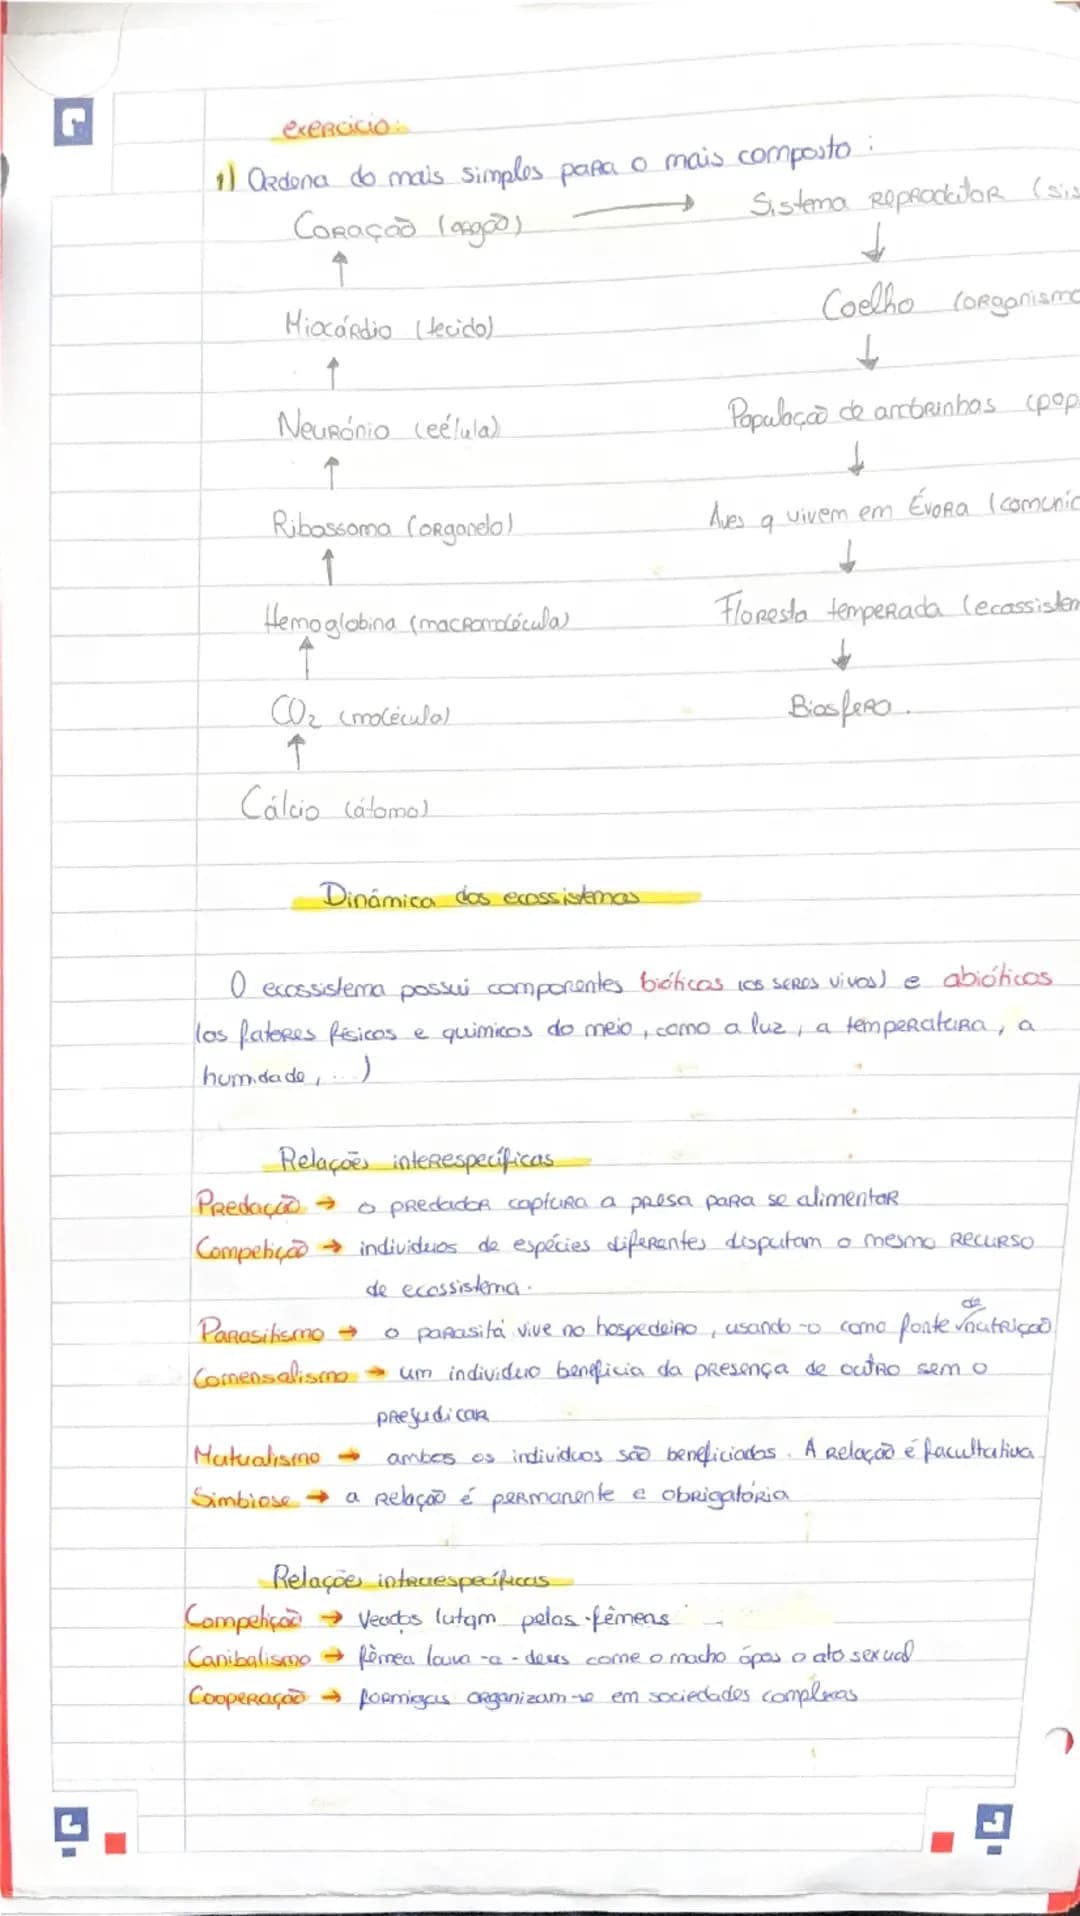 exercício:
1) Ordena do mais simples para o mais composto :
Coração (orgão) → Sistema Reprodutor (sis
↑ ↓
Miocárdio (tecido) Coelho (organismo
↑ ↓
Neurónio (célula) População de andorinhas (pop
↑ ↓
Ribossoma (organelo) Aves q vivem em Évora (comunid
↑ ↓
Hemoglobina (macromolécula) Floresta temperada (ecossistem
↑ ↓
CO₂ (molécula) Biosfera.
↑
Cálcio (átomo)
Dinâmica dos ecossistemas
O ecossistema possui componentes bióticas (os seres vivos) e abióticos
(os fatores físicos e químicos do meio, como a luz, a temperatura, a
humidade, ...)
Relações interespecíficas
Predação → o predador captura a presa para se alimentar
Competição → individuos de espécies diferentes disputam o mesmo recurso
de ecossistema.
Parasitismo → o parasita vive no hospedeiro, usando-o como fonte de nutrição
Comensalismo → um individuo beneficia da presença de outro sem o
prejudicar
Mutualismo → ambos os individuos são beneficiados. A relação é facultativa.
Simbiose → a relação é permanente e obrigatória
Relações intraespecíficas
Competição → Veados lutam pelas fêmeas
Canibalismo → fêmea louva-a-deus come o macho ápos o ato sexual
Cooperação → formigas organizam-se em sociedades complexas